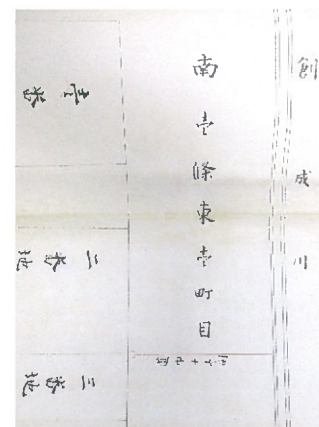 創成川
南壱條東壱町目
壱番
二番地
三番地